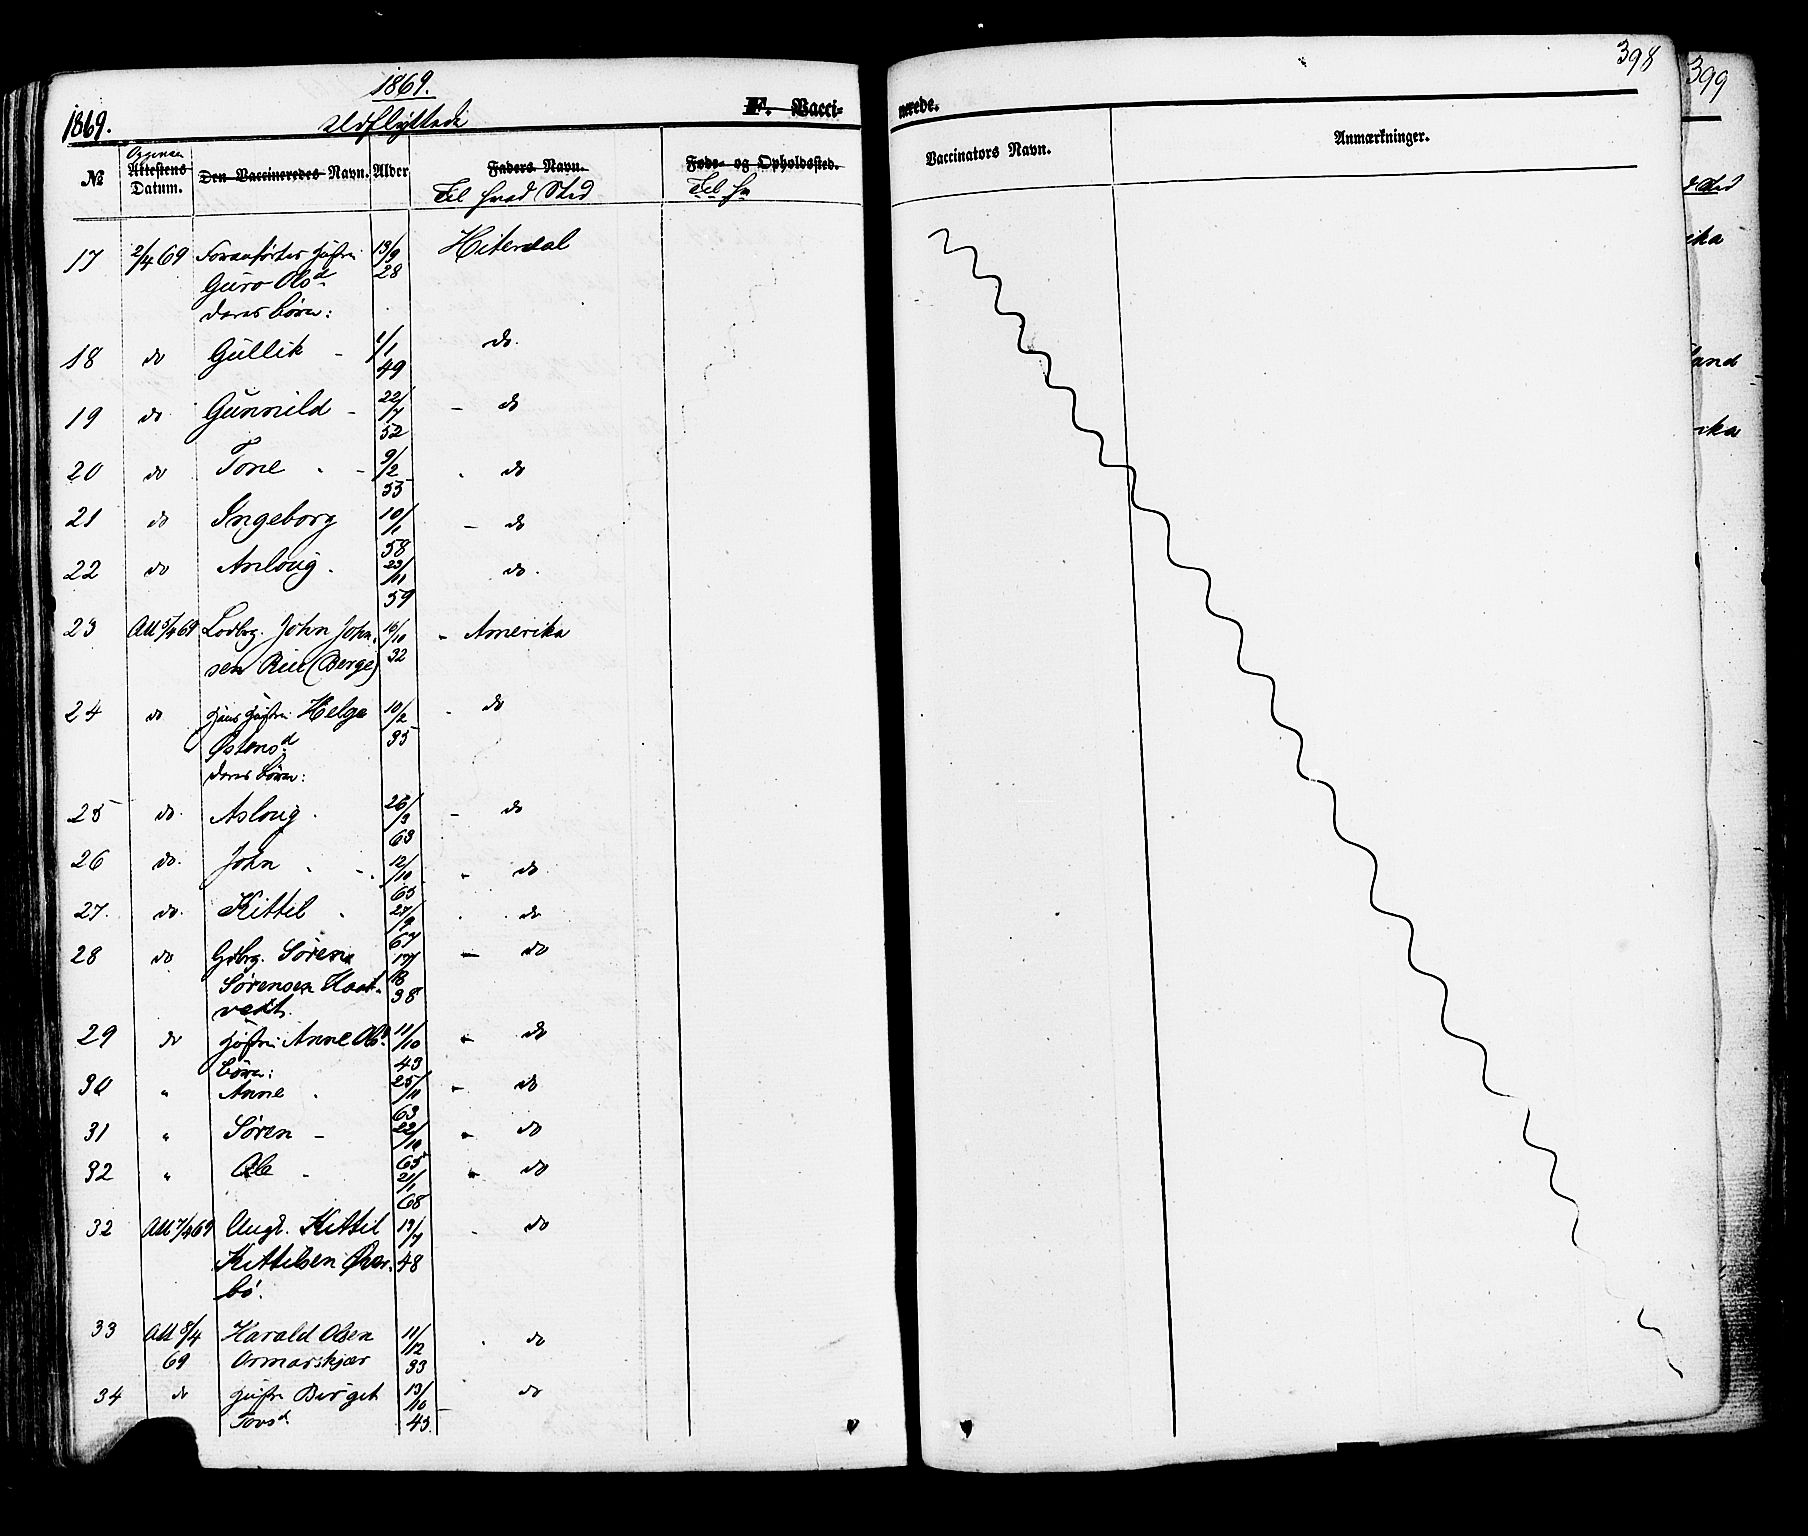 1869.
1869.
Udflyttede
F. Vacci-
№
Attestens
Datum.
Den Vaccineredes Navn.
Alder
Faders Navn.
Til hvad Sted
Føde- og Opholdssted.
17 2/4 69 Foranførtes Hustru 13/9 Hiterdal
Guro Olsd 28
deres Børn:
18 do Gullik - 1/1 49 do.
19 do Gunnild - 22/7 52 - do
20 do Tone 9/2 55 do
21 do Ingeborg 10/1 58 - do
22 do Anloug. 23/11 59 do.
23 Att 5/4 69 Lodbg. John John- 16/10 - Amerika
sen Rui (Berge) 32
24 do Hans Hustru Helge 10/2 - do
Østensd 35
deres Børn:
25 do. Asloug. 26/3 63 - do
26 do. John 12/10 65 - do.
27. do. Kittel 27/9 67 do
28 do Gdbrg. Søren 17/ - do
Sørensen Kaat- 18 38
vedt.
29 do Hustru Anne Olsd 11/10 43 - do
Børn:
30 " Anne 25/11 63 - do
31 " Søren - 22/10 65 - do
32 " Ole 2/1 68 - do
32 Att 7/4 69 Ungk. Kittel 13/7 - do
Kittelsen Øver- 48
bö.
33 Att 8/4 Harald Olsen 11/12 do
69 Ormarskjær 33
34 do Hustru Birget 13/10 do
Tovsd 43
398
nerede.
Vaccinators Navn.
Anmærkninger.
399